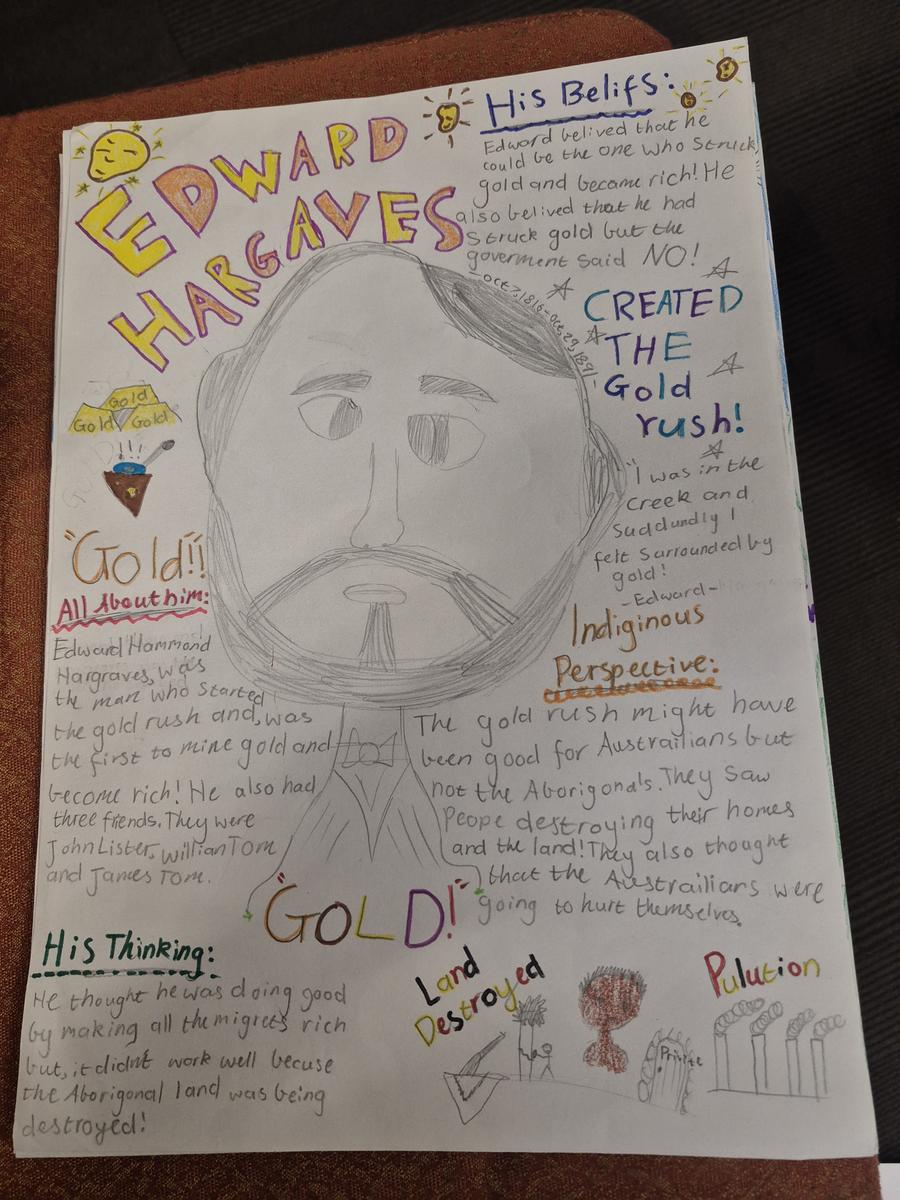 EDWARD
HARGAVES
His Belifs:
Edward belived that he
could be the one who struck
gold and became rich! He
also belived that he had
Struck gold but the
goverment said NO!
-oct,7,1816-Oct,29,1891-
CREATED
THE
Gold
rush!
"I was in the
Creek and
Suddundly I
felt surrounded by
gold!
-Edward-
Gold
Gold Gold
!!!
"Gold!!"
All About him:
Edward Hammond
Hargraves, was
the man who started
the gold rush and, was
the first to mine gold and
become rich! He also had
three friends. They were
John Lister, willian Tom
and James Tom.
Indiginous
Perspective:
The gold rush might have
been good for Austrailians but
not the Aborigonals. They saw
Peope destroying their homes
and the land! They also thought
that the Austrailians were
going to hurt themselves.
"GOLD!"
His Thinking:
He thought he was doing good
by making all the migrets rich
but, it didn't work well becuse
the Aborigonal land was being
destroyed!
Land
Destroyed
Pulution
Private